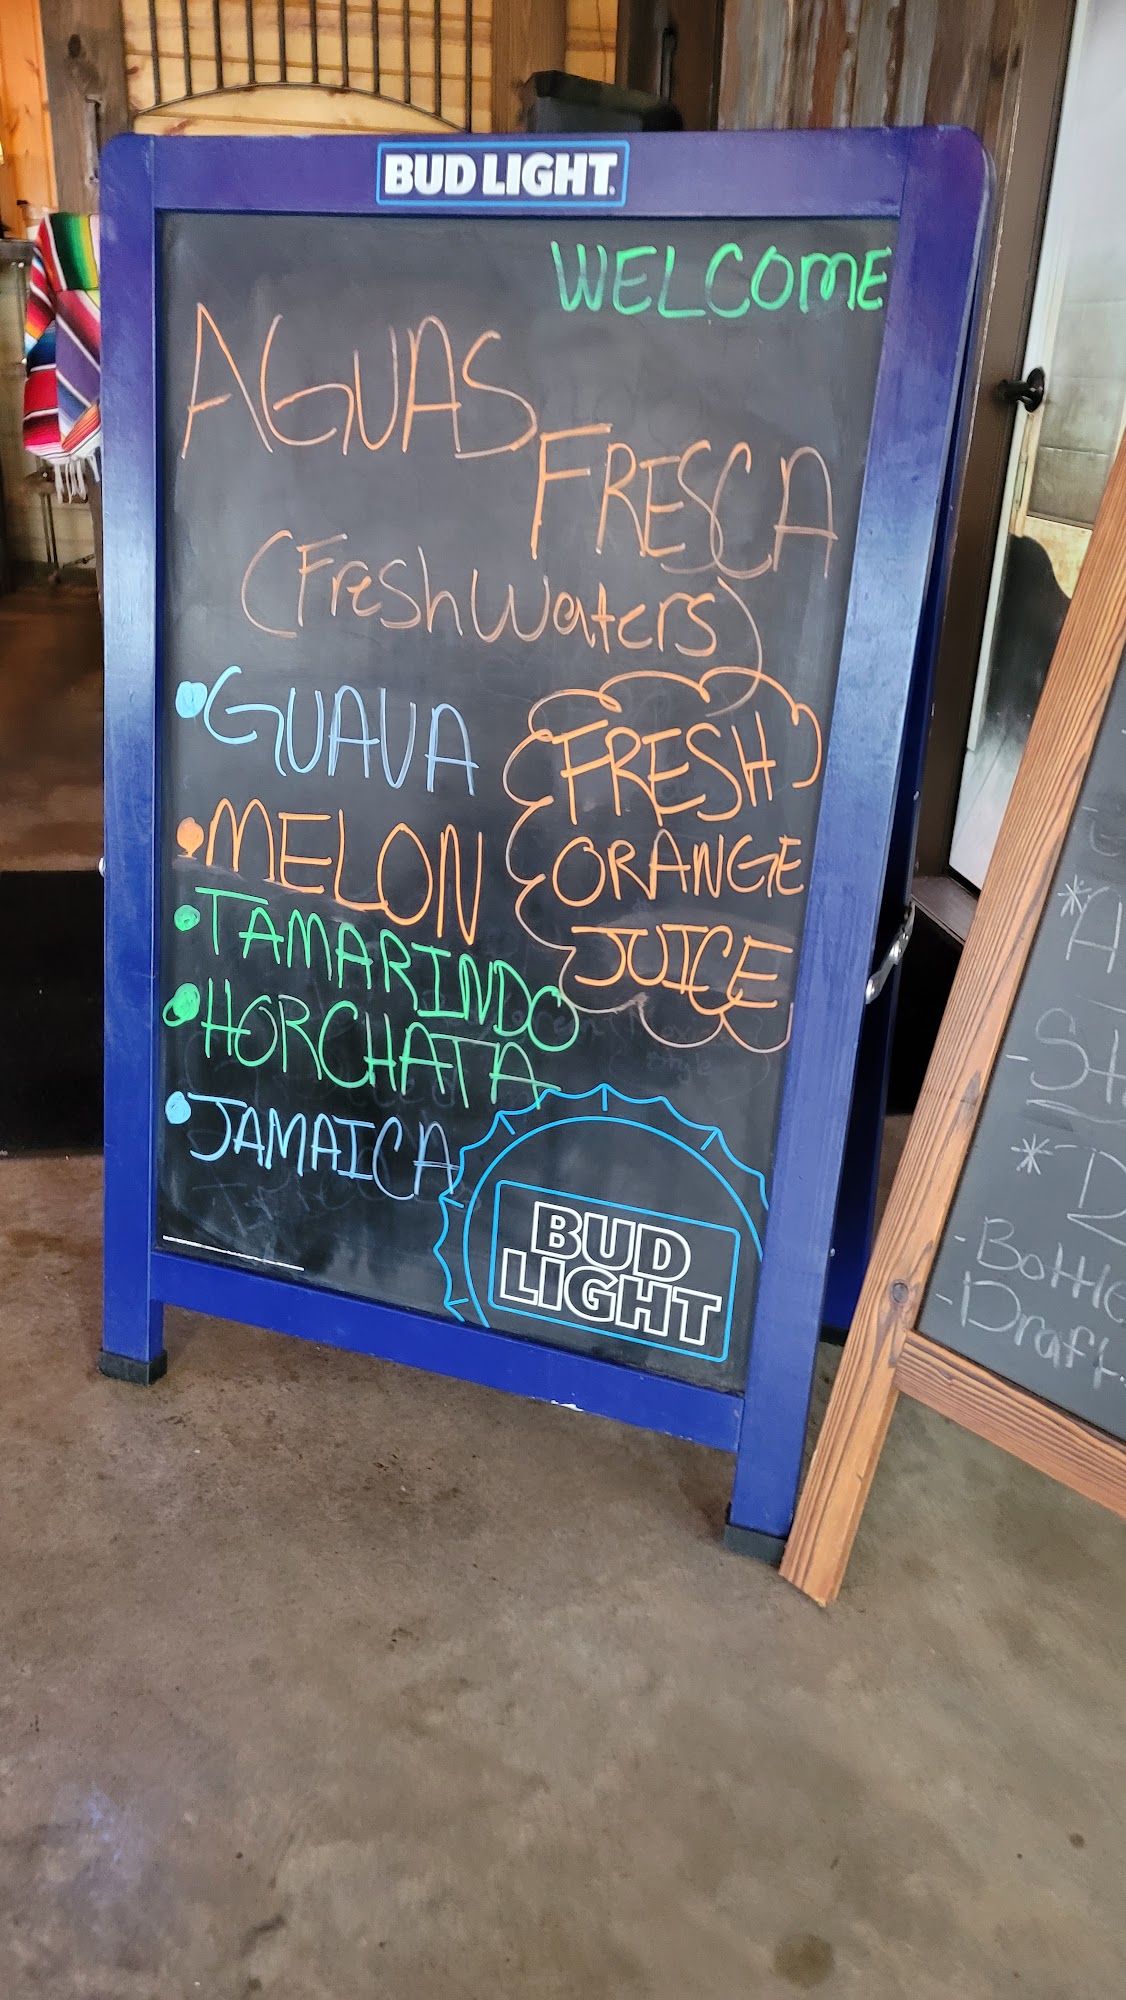 BUD LIGHT
WELCOME
AGUAS
FRESCA
(Fresh Waters)
• GUAVA
• MELON
• TAMARINDO
• HORCHATA
• JAMAICA
FRESH
ORANGE
JUICE
BUD
LIGHT
-Bottle
-Draft